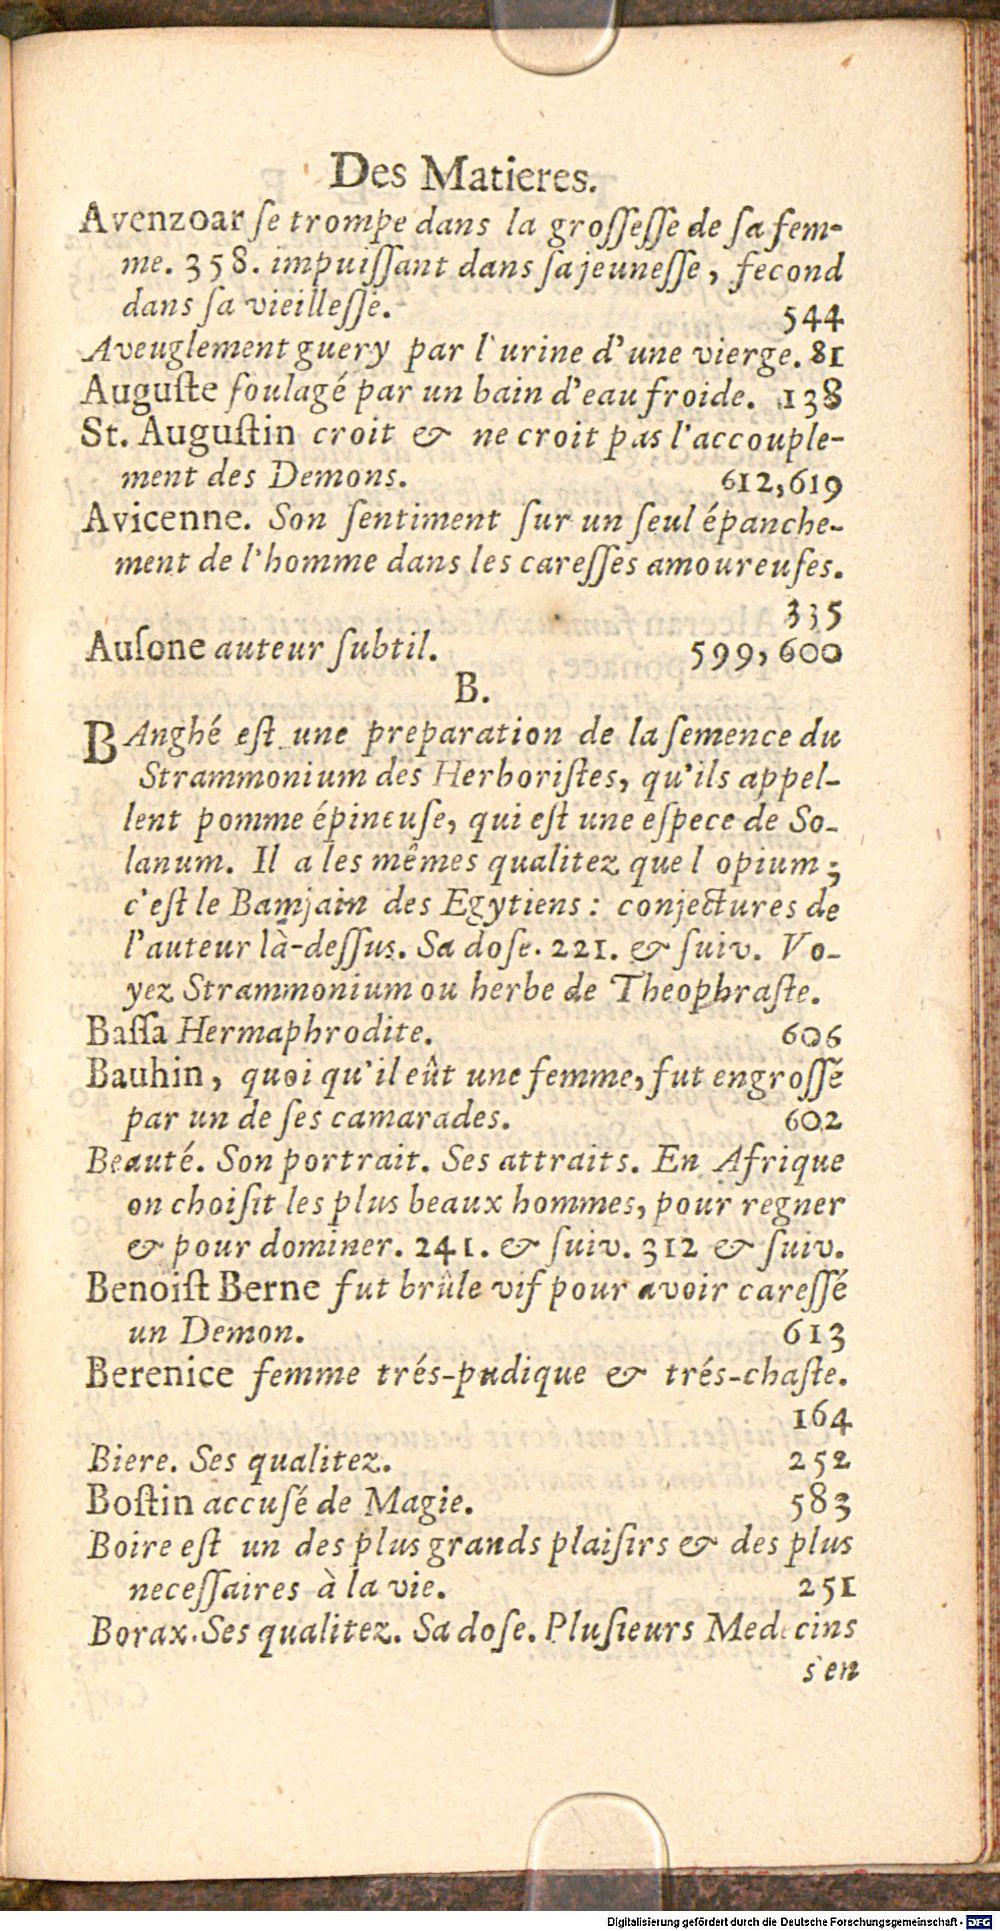 Des Matieres.
Avenzoar ſe trompe dans la groſſeſſe de ſa fem-
me. 358. impuiſſant dans ſa jeuneſſe, fecond
dans ſa vieilleſſe. 544
Aveuglement guery par l'urine d'une vierge. 81
Auguſte ſoulagé par un bain d'eau froide. 138
St. Auguſtin croit & ne croit pas l'accouple-
ment des Demons. 612, 619
Avicenne. Son ſentiment ſur un ſeul épanche-
ment de l'homme dans les careſſes amoureuſes.
335
Auſone auteur ſubtil. 599, 600
B.
BAnghé eſt une preparation de la ſemence du
Strammonium des Herboriſtes, qu'ils appel-
lent pomme épineuſe, qui eſt une eſpece de So-
lanum. Il a les mêmes qualitez que l opium;
c'eſt le Bamjain des Egytiens: conjectures de
l'auteur là-deſſus. Sa doſe. 221. & ſuiv. Vo-
yez Strammonium ou herbe de Theophraſte.
Baſſa Hermaphrodite. 606
Bauhin, quoi qu'il eût une femme, fut engroſſé
par un de ſes camarades. 602
Beauté. Son portrait. Ses attraits. En Afrique
on choiſit les plus beaux hommes, pour regner
& pour dominer. 241. & ſuiv. 312 & ſuiv.
Benoiſt Berne fut brûle vif pour avoir careſſé
un Demon. 613
Berenice femme trés-pudique & trés-chaſte.
164
Biere. Ses qualitez. 252
Boſtin accuſé de Magie. 583
Boire eſt un des plus grands plaiſirs & des plus
neceſſaires à la vie. 251
Borax. Ses qualitez. Sa doſe. Pluſieurs Medecins
s'en
Digitalisierung gefördert durch die Deutsche Forschungsgemeinschaft - DFG